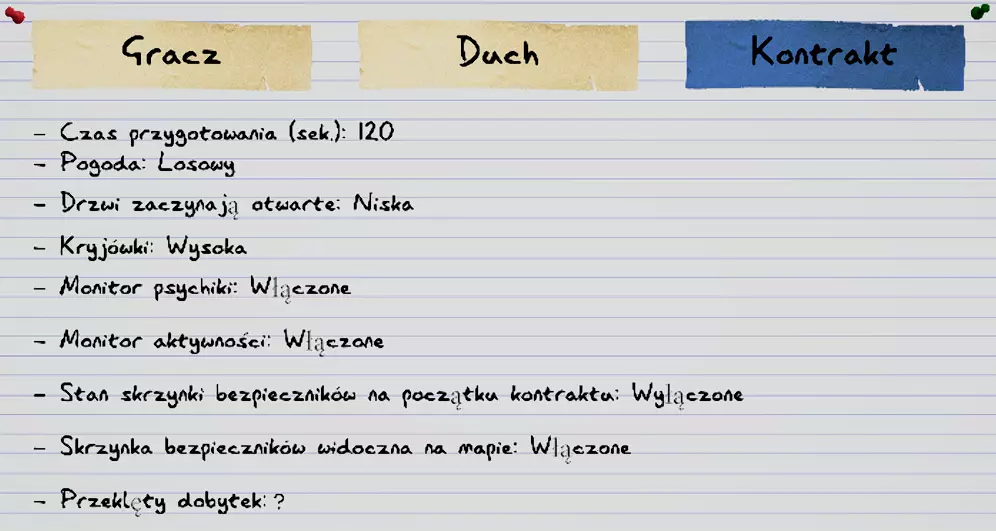 Gracz
Duch
Kontrakt
- Czas przygotowania (sek.): 120
- Pogoda: Losowy
- Drzwi zaczynają otwarte: Niska
- Kryjówki: Wysoka
- Monitor psychiki: Włączone
- Monitor aktywności: Włączone
- Stan skrzynki bezpieczników na początku kontraktu: Wyłączone
- Skrzynka bezpieczników widoczna na mapie: Włączone
- Przeklęty dobytek: ?